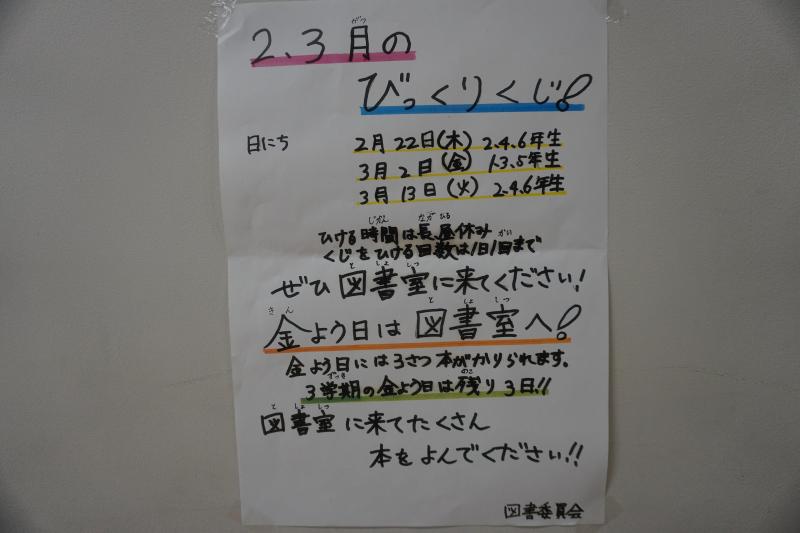 2、3月の
びっくりくじ!
日にち
2月22日(木) 2.4.6年生
3月2日(金) 1.3.5年生
3月13日(火) 2.4.6年生
ひける時間は長昼休み
くじをひける回数は1日1回まで
ぜひ図書室に来てください!
金よう日は図書室へ!
金よう日には3さつ本がかりられます。
3学期の金よう日は残り3日!!
図書室に来てたくさん
本をよんでください!!
図書委員会